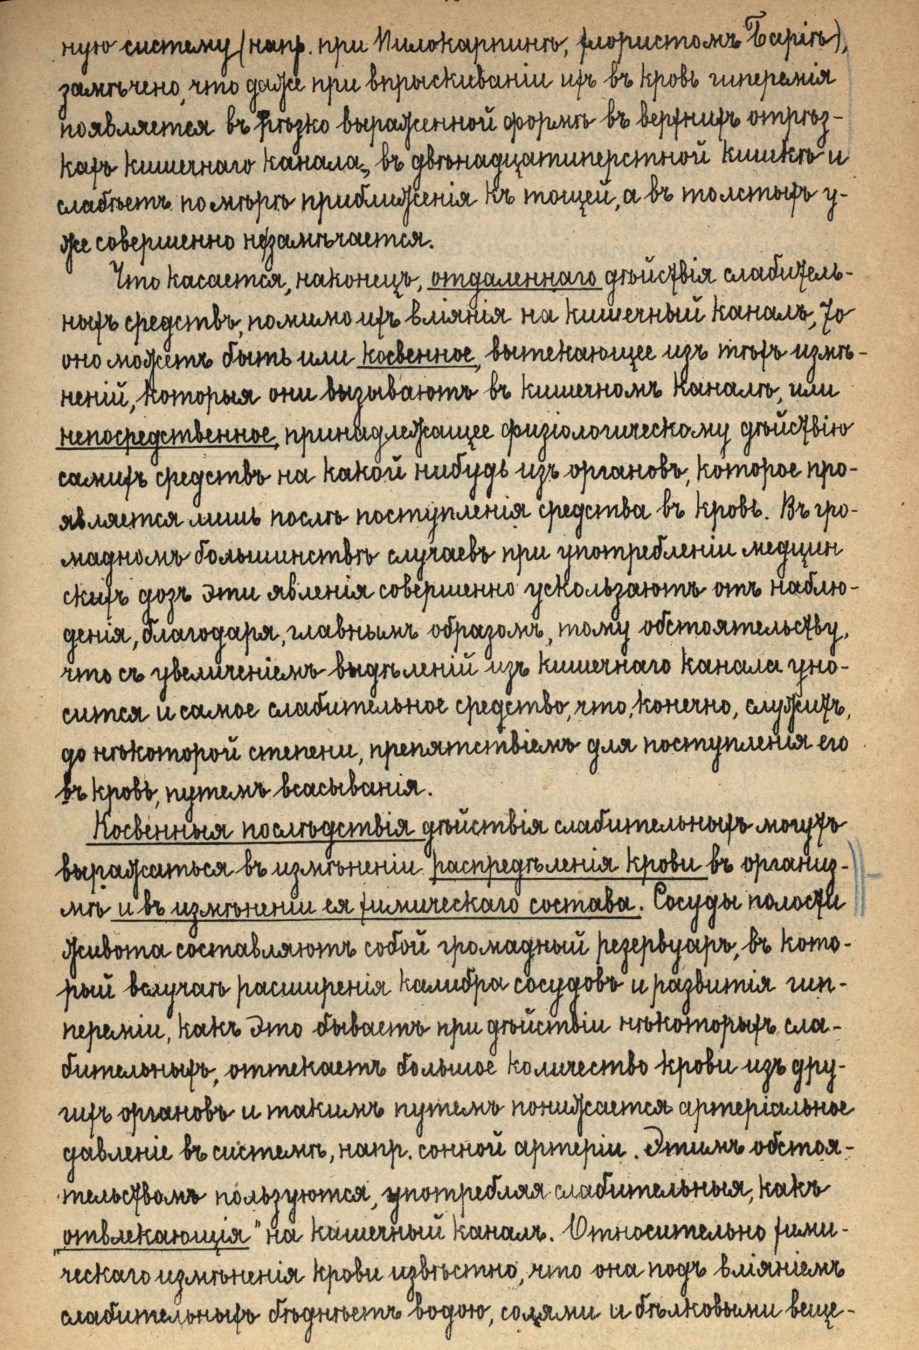 ную систему (напр. при Пилокарпинѣ, хлористомъ Баріѣ),
замѣчено, что даже при впрыскиваніи ихъ въ кровь гиперемія
появляется въ рѣзко выраженной формѣ въ верхнихъ отрѣз-
кахъ кишечнаго канала, въ двѣнадцатиперстной кишкѣ и
слабѣетъ по мѣрѣ приближенія къ тощей, а въ толстыхъ у-
же совершенно незамѣчается.
Что касается, наконецъ, отдаленнаго дѣйствія слабитель-
ныхъ средствъ, помимо ихъ вліянія на кишечный каналъ, то
оно можетъ быть или косвенное, вытекающее изъ тѣхъ измѣ-
неній, которыя они вызываютъ въ кишечномъ каналѣ, или
непосредственное, принадлежащее физіологическому дѣйствію
самихъ средствъ на какой нибудь изъ органовъ, которое про-
является лишь послѣ поступленія средства въ кровь. Въ гро-
мадномъ большинствѣ случаевъ при употребленіи медицин
скихъ дозъ эти явленія совершенно ускользаютъ отъ наблю-
денія, благодаря, главнымъ образомъ, тому обстоятельству,
что съ увеличеніемъ выдѣленій изъ кишечнаго канала уно-
сится и самое слабительное средство, что, конечно, служитъ,
до нѣкоторой степени, препятствіемъ для поступленія его
въ кровь, путемъ всасыванія.
Косвенныя послѣдствія дѣйствія слабительныхъ могутъ
выражаться въ измѣненіи распредѣленія крови въ организ-
мѣ и въ измѣненіи ея химическаго состава. Сосуды полости
живота составляютъ собой громадный резервуаръ, въ кото-
рый вслучаѣ расширенія калибра сосудовъ и развитія гип-
переміи, какъ это бываетъ при дѣйствіи нѣкоторыхъ сла-
бительныхъ, оттекаетъ большое количество крови изъ дру-
гихъ органовъ и такимъ путемъ понижается артеріальное
давленіе въ системѣ, напр. сонной артеріи. Этимъ обстоя-
тельствомъ пользуются, употребляя слабительныя, какъ
„отвлекающія" на кишечный каналъ. Относительно хими-
ческаго измѣненія крови извѣстно, что она подъ вліяніемъ
слабительныхъ бѣднѣетъ водою, солями и бѣлковыми веще-